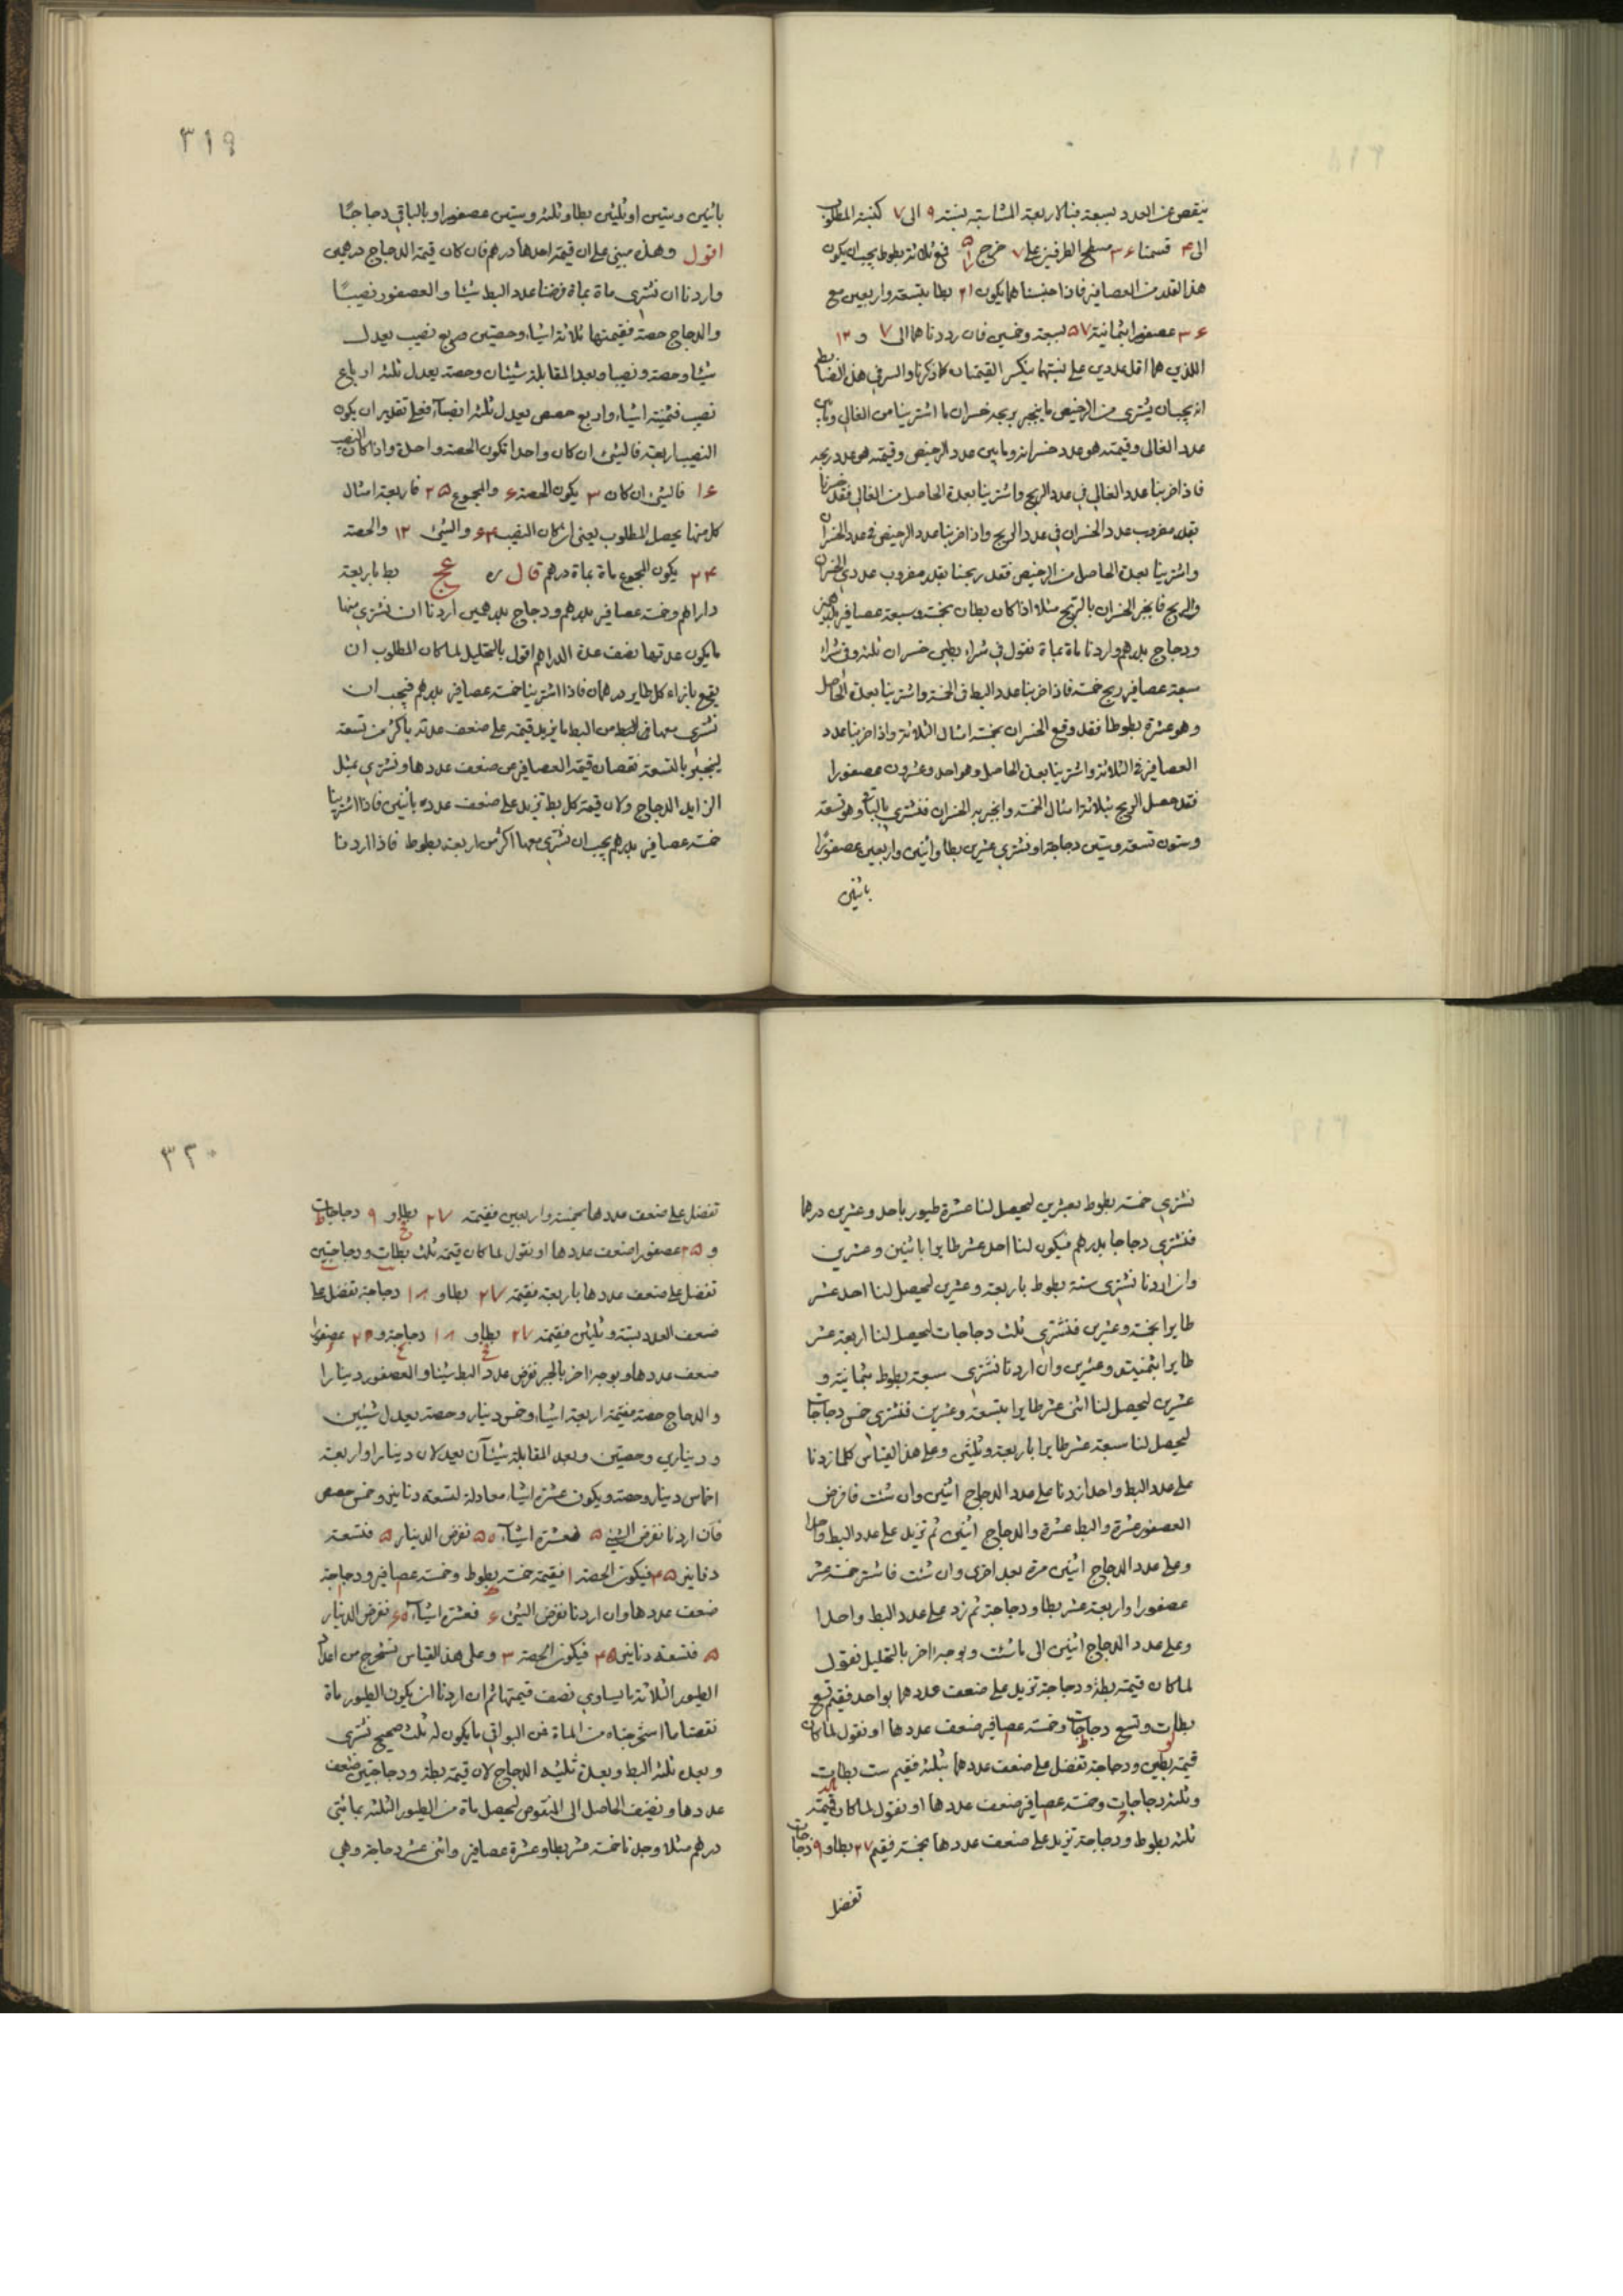 ينقص عن العدد بسبعة فبالاربعة المتناسبة نسبة ٩ الى ٧ كنسبة المطلوب
الى ٤ قسمنا ٣٦ مسطح الطرفين على ٧ خرج ٥ ١ ٧ فمع ثلاثة بطوط يجب ان يكون
هذا القدر من العصافير فاذا جنسناهما يكون ٢١ بطا بتسعة واربعين مع
٣٦ عصفورا بثمانية ٥٧ بسبعة وخمسين فان رددناهما الى ٧ و ١٢
اللذين هما اقل عددين على نسبتهما ينكسر القيمتان كما ذكرنا والسر في هذا الضابط
انه يجب ان يشترى من الرخيص ما ينجبر بربحه خسران ما اشترينا من الغالي وما بين
عدد الغالى وقيمته هو عدد خسرانه وما بين عدد الرخيص وقيمته هو عدد ربحه
فاذا ضربنا عدد الغالي في عدد الربح واشترينا بعدة الحاصل من الغالي فقد خسرنا
بقدر مضروب عدد الخسران في عدد الربح واذا ضربنا عدد الرخيص في عدد الخسران
واشترينا بعدة الحاصل من الرخيص فقد ربحنا بقدر مضروب عددي الخسران
والربح فانجبر الخسران بالربح مثلا اذا كان بطان بخمسة وسبعة عصافير بدرهمين
ودجاج بدرهم واردنا ماة بماة نقول في شراء بطين خسران ثلثة وفي شراء
سبعة عصافير ربح خمسة فاذا ضربنا عدد البط في الخمسة واشترينا بعدة الحاصل
وهو عشرة بطوطا فقد وقع الخسران بخمسة امثال الثلاثة واذا ضربنا عدد
العصافير في الثلاثة واشترينا بعدة الحاصل وهو احد وعشرون عصفورا
فقد حصل الربح بثلاثة امثال الخمسة وانجبر به الخسران فنشتري بالباقي وهو تسعة
وستون تسعة وستين دجاجة او نشتري عشرين بطا واثنين واربعين عصفورا
باثنين
٣١٩
باثنين وستين او ثلثين بطا وثلثة وستين عصفورا وبالباقي دجاجا
اقول وهذا مبني على ان قيمة احدها درهم فان كان قيمة الدجاج درهمين
واردنا ان نشتري ماة بماة فرضنا عدد البط شيئا والعصفور نصيبا
والدجاج حصة فقيمتها ثلاثة اشياء وحصتين وربع نصيب يعدل
شيئا وحصة ونصيبا وبعد المقابلة شيئان وحصة يعدل ثلثة ارباع
نصيب فثمنية اشياء واربع حصص يعدل ثلثة انصباء فعلى تقدير ان يكون
النصيب اربعة فالشئ ان كان واحدا تكون الحصة واحدة واذا كان النصيب
١٦ فالشئ ان كان ٣ يكون الحصة ٦ والمجموع ٢٥ فاربعة امثال
كل منها يحصل المطلوب يعني ان كان النصيب ٦٤ والشئ ١٢ والحصة
٢٤ يكون المجموع ماة بماة درهم قال ره عج بط باربعة
دراهم وخمسة عصافير بدرهم ودجاج بدرهمين اردنا ان نشتري منها
ما يكون عدتها نصف عدة الدراهم اقول بالتحليل لما كان المطلوب ان
يقع بازاء كل طاير درهمان فاذا اشترينا خمسة عصافير بدرهم فيجب ان
نشتري معها من البط ما يزيد قيمته على ضعف عدته باكثر من تسعة
لينجبر بالتسعة نقصان قيمة العصافير عن ضعف عددها ونشتري بمثل
الزايد الدجاج وكان قيمة كل بط تزيد على ضعف عدده باثنين فاذا اشترينا
خمسة عصافير بدرهم يجب ان نشتري معها اكثر من اربعة بطوط فاذا اردنا
نشتري خمسة بطوط بعشرين ليحصل لنا عشرة طيور باحد وعشرين درهما
فنشتري دجاجا بدرهم فيكون لنا احد عشر طايرا باثنين وعشرين
وان اردنا نشتري ستة بطوط باربعة وعشرين ليحصل لنا احد عشر
طايرا بخمسة وعشرين فنشتري ثلث دجاجات ليحصل لنا اربعة عشر
طايرا بثمنية وعشرين وان اردنا نشتري سبعة بطوط بثمانية و
عشرين ليحصل لنا اثنى عشر طايرا بتسعة وعشرين فنشتري خمس دجاجات
ليحصل لنا سبعة عشر طايرا باربعة وثلثين وعلى هذا القياس كلما زدنا
على عدد البط واحدا زدنا على عدد الدجاج اثنين وان شئت فافرض
العصفور عشرة والبط عشرة والدجاج اثنين ثم تزيد على عدد البط واحدا
وعلى عدد الدجاج اثنين مرة بعد اخرى وان شئت فاشتر خمسة عشر
عصفورا واربعة عشر بطا ودجاجة ثم زد على عدد البط واحدا
وعلى عدد الدجاج اثنين الى ما شئت وبوجه اخر بالتحليل نقول
لما كان قيمة بطة ودجاجة تزيد على ضعف عددهما بواحد فقيم تسع
بطات وتسع دجاجات وخمسة عصافير ضعف عددها او نقول لما كان
قيمة بطين ودجاجة تفضل على ضعف عددهما بثلثة فقيم ست بطات
وثلثة دجاجات وخمسة عصافير ضعف عددها او نقول لما كان قيمة
ثلثة بطوط ودجاجة تزيد على ضعف عددها بخمسة فقيم ٢٧ بطا و ٩ دجاجات
تفضل
٣٢٠
تفضل على ضعف عددها بخمسة واربعين فقيمة ٢٧ بطا و ٩ دجاجات
و ٢٥ عصفورا ضعف عددها او نقول لما كان قيمة ثلث بطات ودجاجتين
تفضل على ضعف عددها باربعة فقيمة ٢٧ بطا و ١٨ دجاجة تفضل على
ضعف العدد بستة وثلثين فقيمة ٢٧ بطا و ١٨ دجاجة و ٢٠ عصفورا
ضعف عددها وبوجه اخر بالجبر نفرض عدد البط شيئا والعصفور دينارا
والدجاج حصة فقيمة اربعة اشياء وخمس دينار وحصة يعدل شيئين
ودينارين وحصتين وبعد المقابلة شيئان يعدلان دينارا واربعة
اخماس دينار وحصة ويكون عشرة اشياء معادلة لتسعة دنانير وخمس حصص
فان اردنا نفرض الشئ ٥ فعشرة اشياء ٥٠ نفرض الدينار ٥ فتسعة
دنانير ٤٥ فيكون الحصة ١ فقيمة خمسة بطوط وخمسة عصافير ودجاجة
ضعف عددها وان اردنا نفرض الشئ ٦ فعشرة اشياء ٦٠ نفرض الدينار
٥ فتسعة دنانير ٤٥ فيكون الحصة ٣ وعلى هذا القياس نستخرج من اعداد
الطيور الثلاثة ما يساوي نصف قيمتها ثم ان اردنا ان يكون الطيور ماة
نقصنا ما استخرجناه من الماة فمن البواقي ما يكون له ثلث صحيح نشتري
وبعدة ثلثه البط وبعدة ثلثيه الدجاج لان قيمة بطة ودجاجتين ضعف
عددها ونضيف الحاصل الى المنقوص ليحصل ماة من الطيور الثلثة بمائتي
درهم مثلا وجدنا خمسة عشر بطا وعشرة عصافير واثنى عشر دجاجة وهي